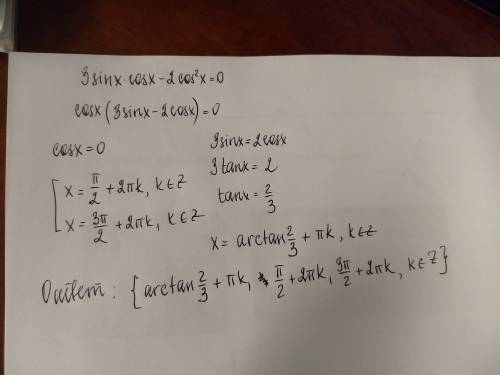 3sinx·cosx-2cos²x=0
cosx(3sinx-2cosx)=0
cosx=0
[x=π/2+2πk, k∈Z
x=3π/2+2πk, k∈Z
3sinx=2cosx
3tanx=2
tanx=2/3
x=arctan 2/3+πk, k∈Z
Ответ: {arctan 2/3+πk, π/2+2πk, 3π/2+2πk, k∈Z}